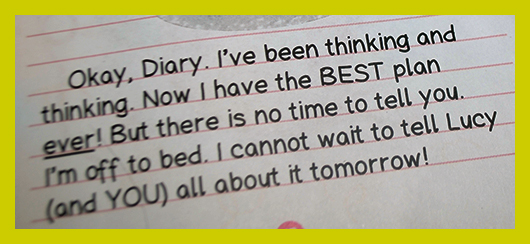 Okay, Diary. I've been thinking and
thinking. Now I have the BEST plan
ever! But there is no time to tell you.
I'm off to bed. I cannot wait to tell Lucy
(and YOU) all about it tomorrow!